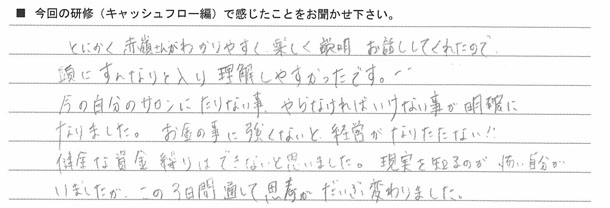 ■ 今回の研修（キャッシュフロー編）で感じたことをお聞かせ下さい。
とにかく赤嶺さんがわかりやすく楽しく説明 お話ししてくれたので
頭にすんなりと入り理解しやすかったです。
今の自分のサロンにたりない事、やらなければいけない事が明確に
なりました。お金の事に強くないと経営がなりたたない!!
健全な資金繰りはできないと思いました。現実を知るのが怖い自分が
いましたが、この3日間通して思考がだいぶ変わりました。